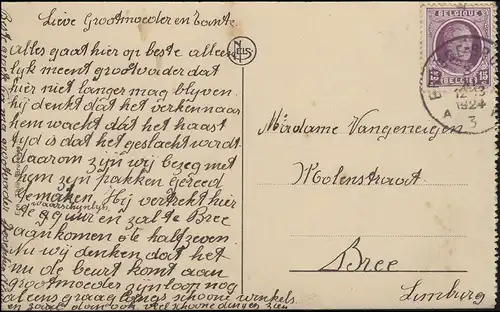 Lieve Grootmoeder en Tante.
Alles gaat hier op beste alleen
lijk meent grootvader dat
hier niet langer mag blyven.
hij denkt dat het verkennaar
hem wacht dat het haast
tyd is dat het geslacht wordt.
daarom zyn wij bezeg met
hem zyn pakken gereed
te maken. Hij vertrekt hier
waarschynlyk
te 9 uur en zal te Bree
aankomen o te half zeven.
Nu wij denken dat het
nu de beurt komt aan
grootmoeder zyn loon nog
alleens graag langs schoone winkels
en zoude dan ook veel schoone dingen zien
NELS
BELGIQUE
15 15
BELGIE
12-13
1924
A A
3
Madame Vangeneigen
Molenstraat
Bree
Limburg